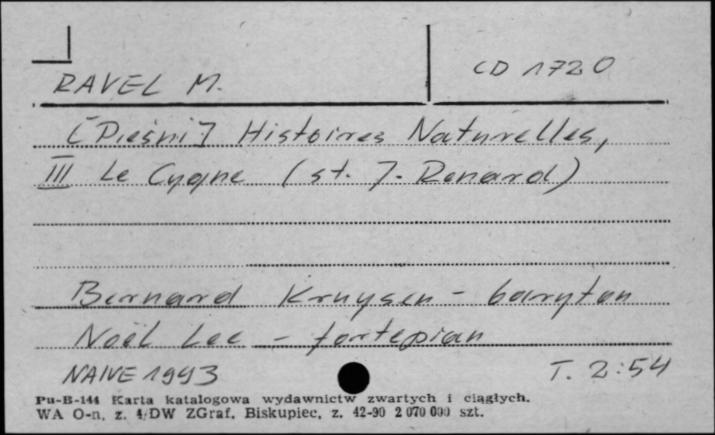 RAVEL M. CD 1720
[Pieśni] Histoires Naturelles,
III Le Cygne (st. J. Renard)
Bernard Kruysen - baryton
Noël Lee - fortepian
NAIVE 1993 T. 2:54
Pu-B-144 Karta katalogowa wydawnictw zwartych i ciągłych.
WA O-n, z. 4/DW ZGraf. Biskupiec, z. 42-90 2 070 000 szt.